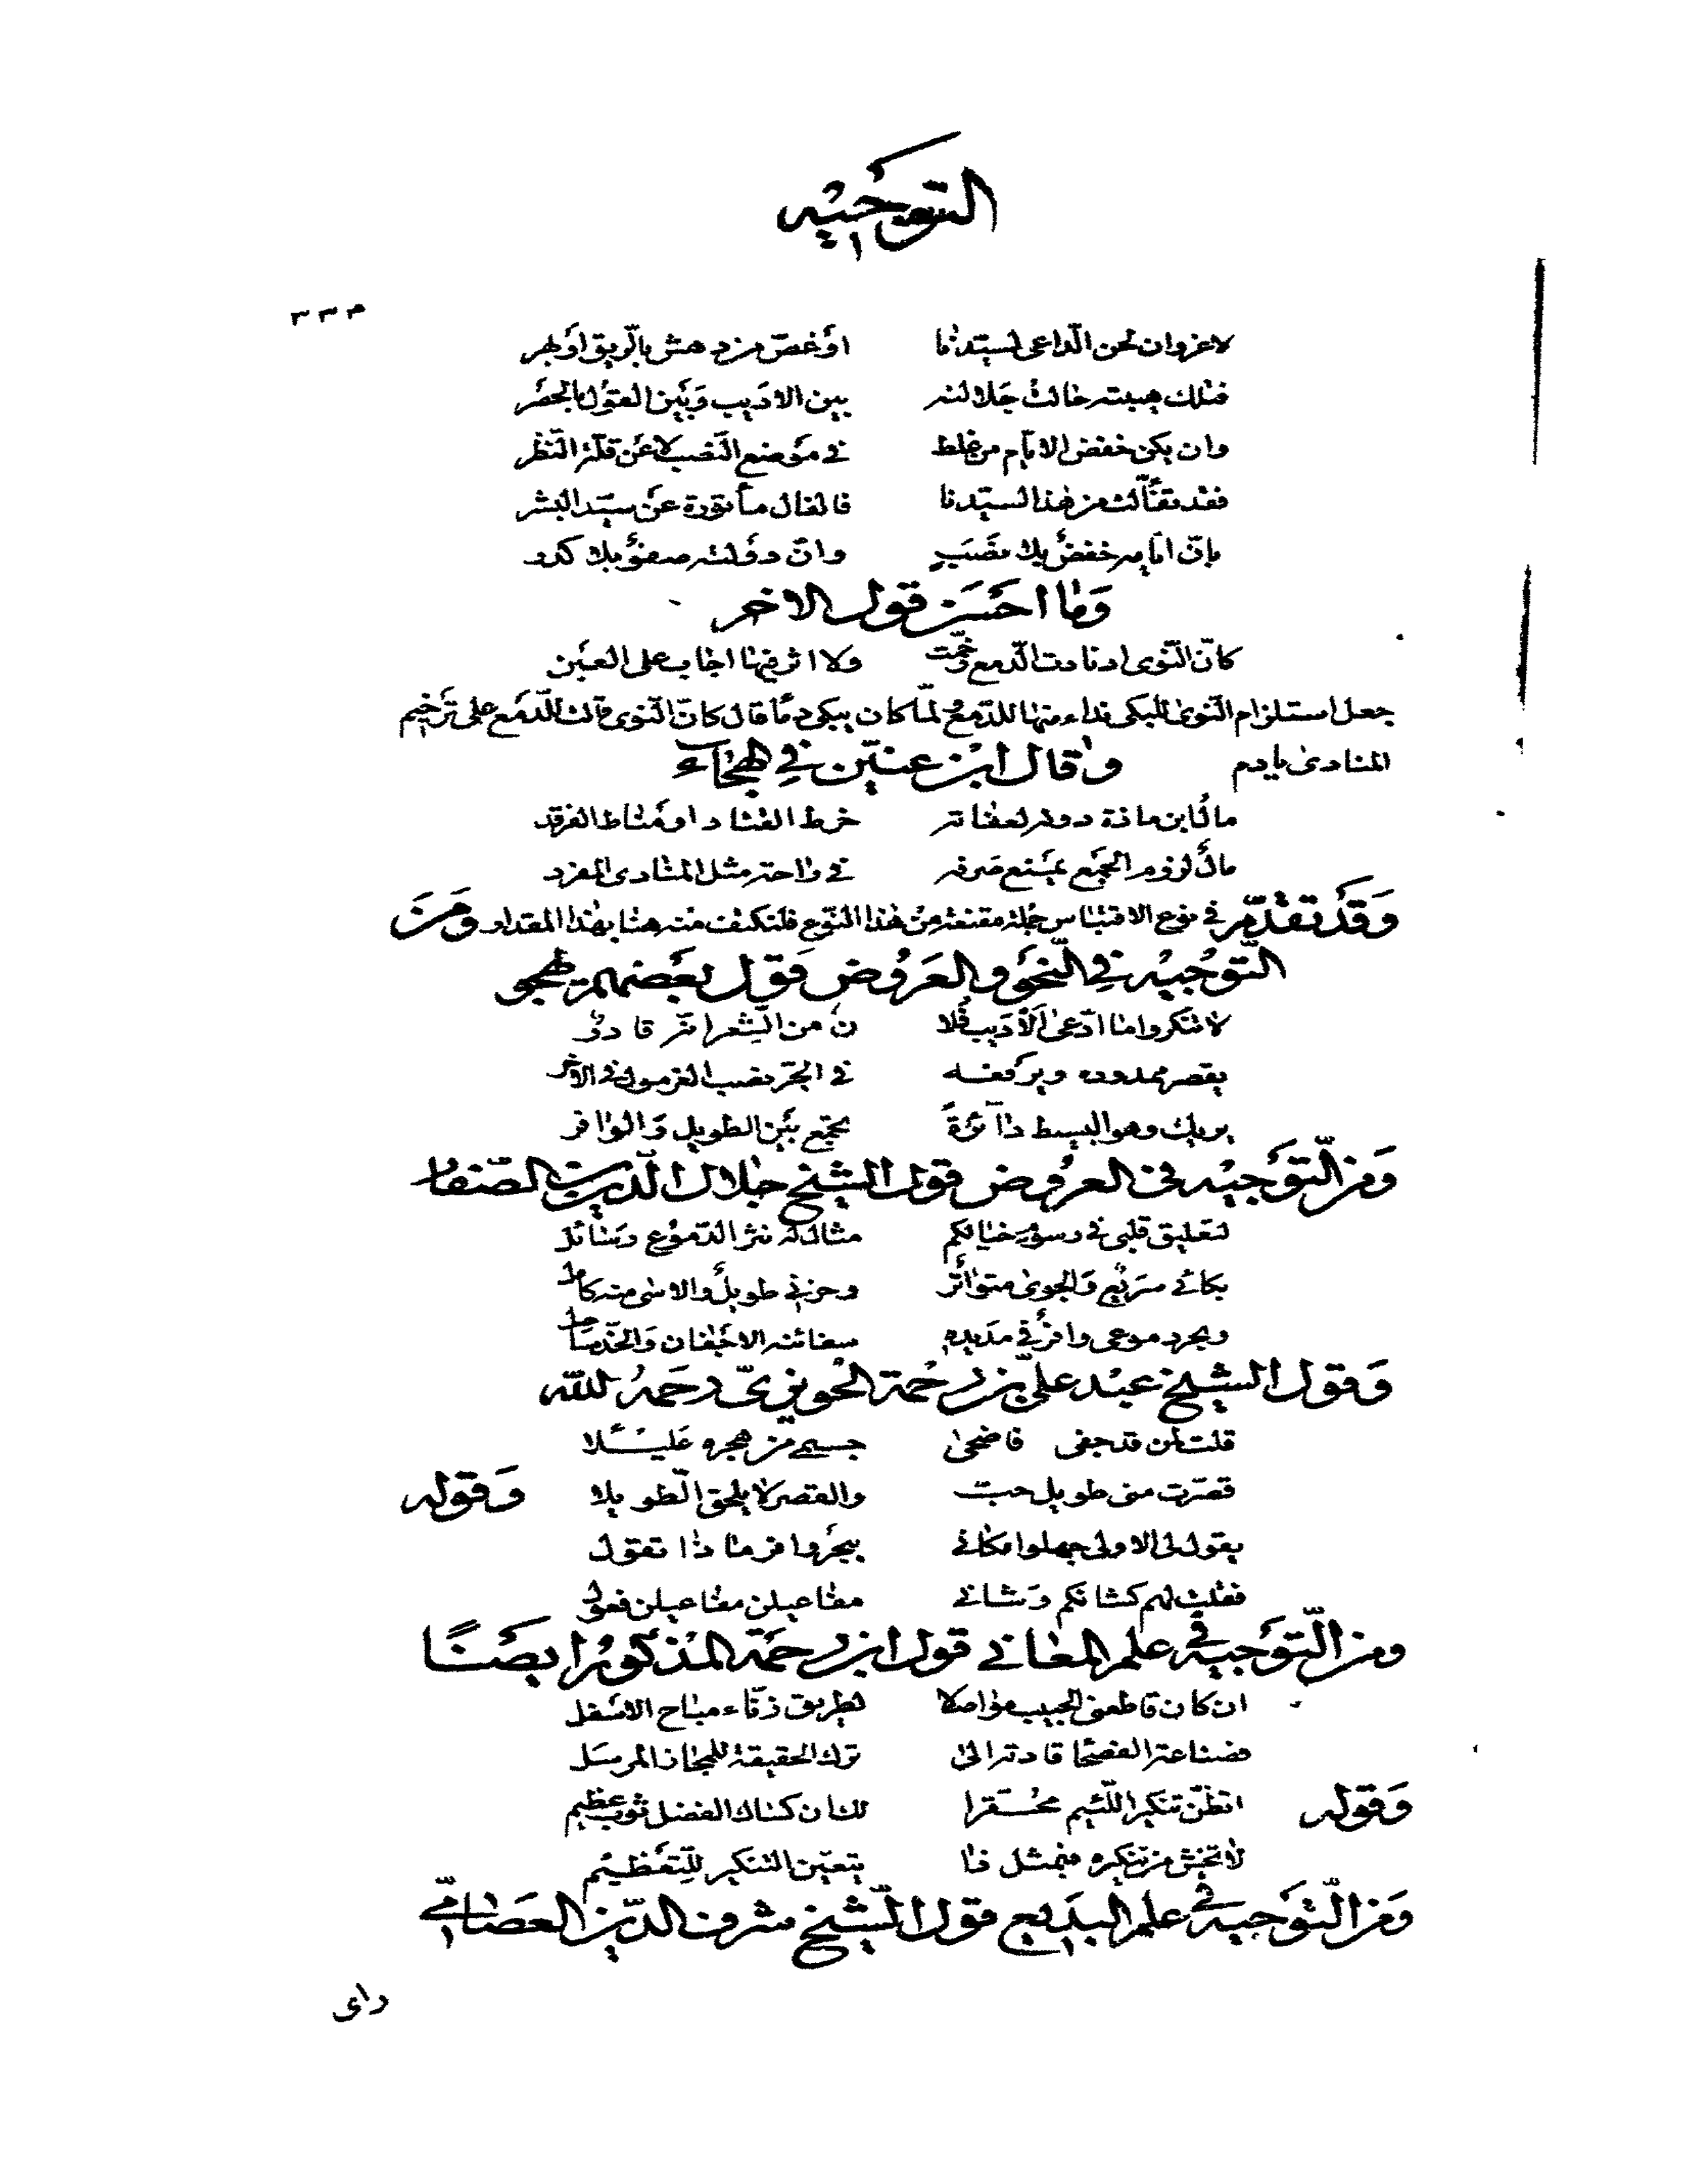 التوجيه
٣٣٣
لا غرو ان لحن الداعى لسيدنا او غصّ من دهش بالريق او بهر
فتلك هيبته حالت جلالته بين الاديب وبين القول بالحصر
وان يكن خفض الايّام من غلط في موضع النّصب لا عن قلّة النّظر
فقد تفأّلت من هذا لسيّدنا فالفال مأثورة عن سيّد البشر
بانّ ايّامه خفضٌ بلا نصَبٍ وانّ دولته صفوٌ بلا كدر
وما احسن قول الاخر
كانّ النّوى اذ نادت الدّمع رخّمت ولا اثر فيها اجاب على العين
جعل استلزام النّوى للبكى نداء منها للدّمع ولمّا كان يبكى دمًا قال كانّ النوى قالت للدّمع على ترخيم
المنادى يا دم وقال ابن عنين في الهجاء
مال ابن مازة دونه لعفاته خرط القتاد او مناط الفرقد
مالٌ لزوم الجمع يمنع صرفه في راحة مثل المنادى المفرد
وقد تقدّم في نوع الاقتباس جملة مقنعة من هذا النّوع فلنكتف منه هنا بهذا المقدار ومن
التّوجيه في النّحو والعروض قول بعضهم يهجو
لا تنكروا ما ادّعى الاديب فلا ن من الشعر انّه قادر
يقصر ممدوده ويرفعه في الجرّ نصب الغرمول في الآخر
يريك وهو البسيط دائرة يجمع بين الطويل والوافر
ومن التّوجيه في العروض قول الشيخ جلال الدّين الصّفار
لتعليق قلبى في رسوم خيالكم مثال له نثر الدّموع رسائل
بكائي سريع والجوى متواتر وحزني طويلٌ والاسى منه كامل
وبحر دموعي وافرٌ في مديده سفائنه الاجفان والخدّ ساحل
وقول الشيخ عبد عليّ بن رحمة الحويزىّ رحمه الله
قلت لمن قد جفى فاضحى جسمي من هجره عليلا
قصّرت منى طويل حب والقصر لا يلحق الطّويلا وقوله
يقول لى الاولى جهلوا مكاني ببحر وافر ماذا تقول
فقلت لهم كشانكم وشاني مفاعيلن مفاعيلن فعول
ومن التّوجيه في علم المعاني قول ابن رحمة المذكور ايضًا
ان كان قاطعنى الحبيب مواصلا لطريق زقّاء مباح الاسفل
فصناعة الفصحا قادته الى ترك الحقيقة للمجاز المرسل
وقوله اتظنّ تنكير اللّئيم محقّرا لك ان كساك الفضل ثوب عظيم
لا تخش من تنكيره فبمثل ذا يتعيّن التنكير للتّعظيم
ومن التّوجيه في علم البديع قول الشّيخ شرف الدّين العصامىّ
راى